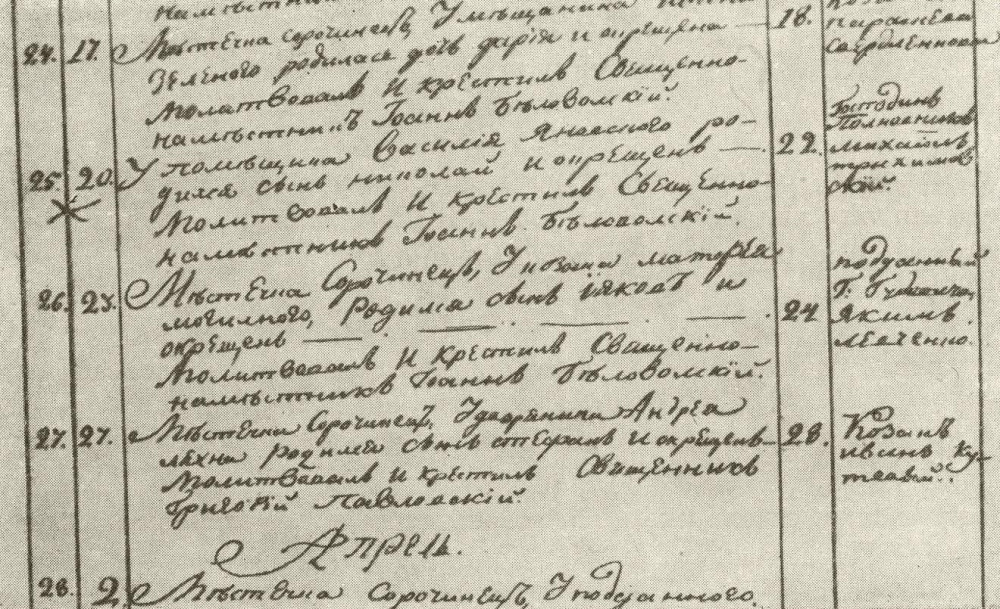 намѣстник
24. 17. Мѣстечка Сорочинецъ, У мѣщанина
Зеленого родилась дочь дарія и окрещена — 18.
параскева
Молитвовалъ И крестилъ Свещенно-
намѣстникъ Іоаннъ Бѣловолскій.
25. 20. У помѣщика Василія Яновского ро- 22.
дился сынъ николай и окрещенъ —
Молитвовалъ И крестилъ Свещенно-
намѣстникъ Іоаннъ Бѣловолскій.
Господинъ
Полковникъ
михаилъ
трахимов
скій.
26. 23. Мѣстечка Сорочинецъ, У козака матфея
могилного, Родился сынъ іяковъ и 24
окрещенъ —
Молитвовалъ И крестилъ Свещенно-
намѣстникъ Іоаннъ Бѣловолскій.
подданный
Г.
Якимъ
27. 27. Мѣстечка Сорочинецъ, У дворянина Андрея
родился сынъ стефанъ И окрещенъ — 28.
Молитвовалъ И крестилъ Священникъ
Григорій Павловскій.
Козакъ
иванъ
Апрель.
28. 2. Мѣстечка Сорочинецъ, У подданного